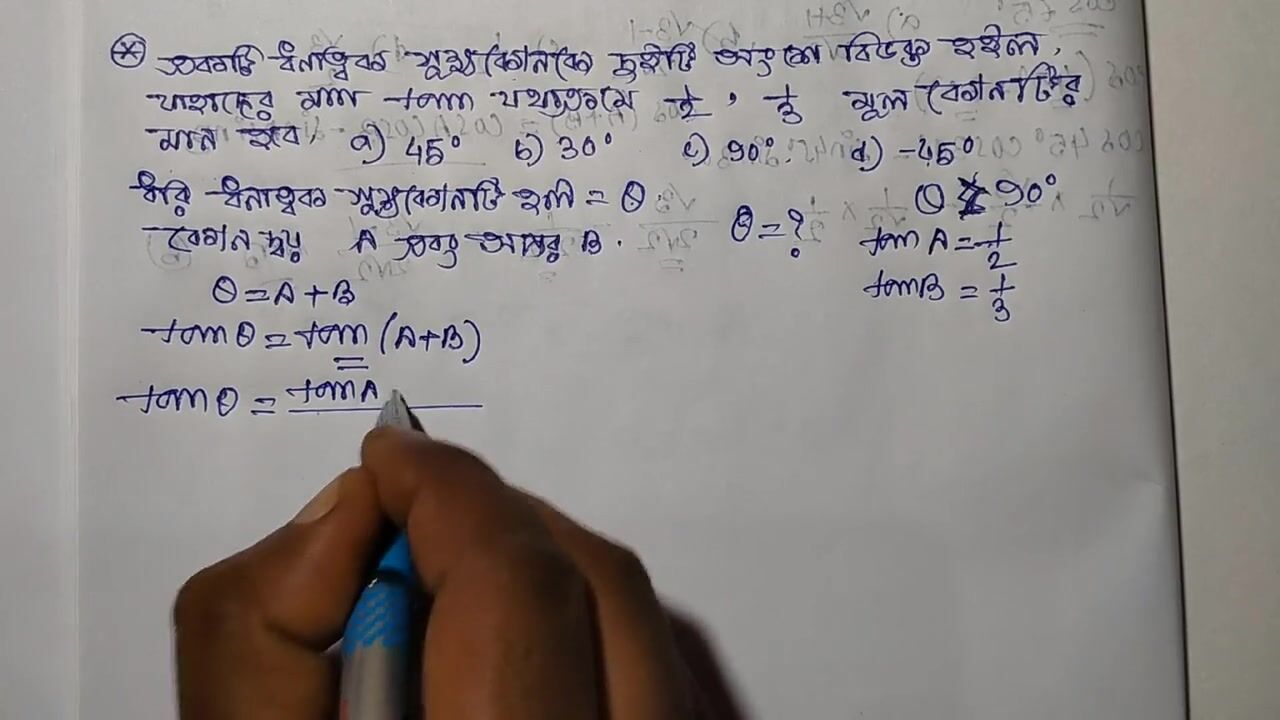 একটি ধনাত্মক সূক্ষ্মকোনকে দুইটি অংশে বিভক্ত হইল,
যাহাদের মান tan যথাক্রমে 1/2, 1/3 মূল কোনটির
মান হবে, a) 45° b) 30° c) 90°. d) -45°
ধরি ধনাত্মক সূক্ষ্মকোনটি হল = θ
θ 90°
কোন দ্বয় A এবং অপর B.
θ = ?
tan A = 1/2
tan B = 1/3
θ = A + B
tan θ = tan (A+B)
tan θ = tan A